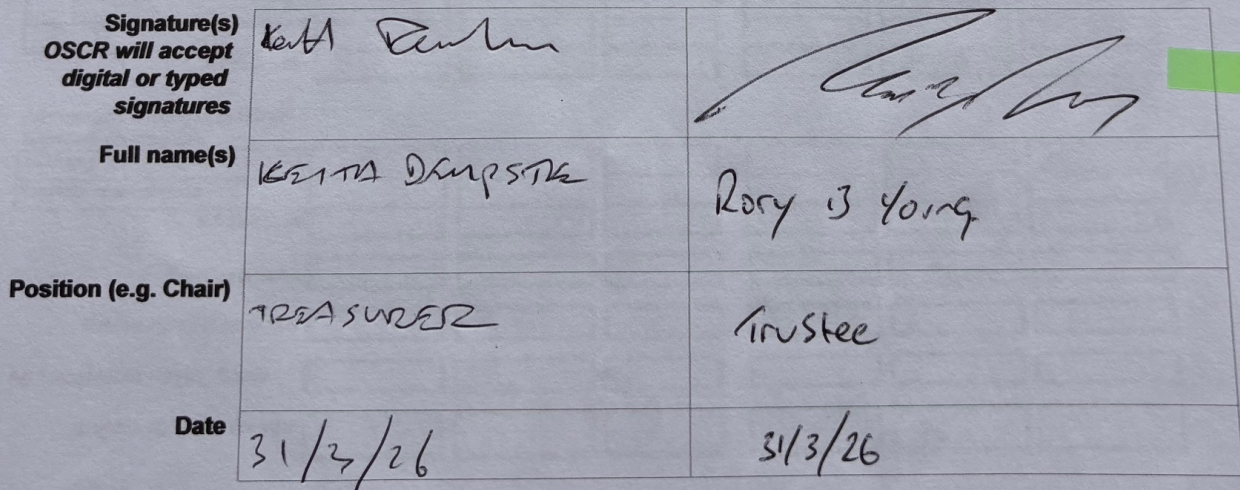 Signature(s)
OSCR will accept
digital or typed
signatures
Keith
Full name(s)
KEITH DEMPSTER
Rory B Young
Position (e.g. Chair)
TREASURER
Trustee
Date
31/3/26
31/3/26